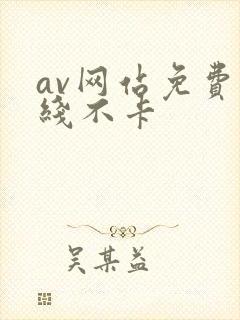 av网佔免費
綫不卡
吴某益